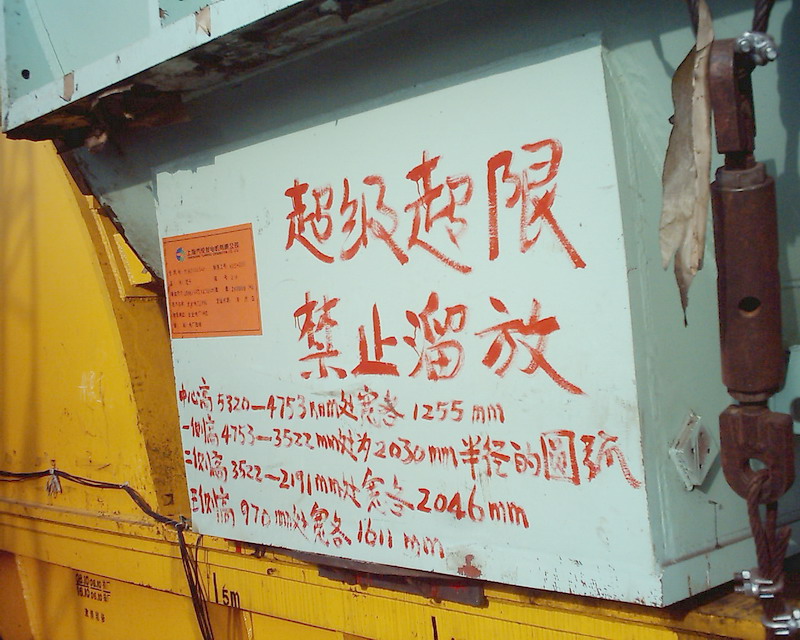 超级超限
禁止溜放
中心高5320—4753mm处宽各1255mm
一侧高4753—3522mm处为2030mm半径的圆弧
二侧高3522—2191mm处宽各2046mm
三侧高970mm处宽各1611mm
上海汽轮发电机有限公司
15m